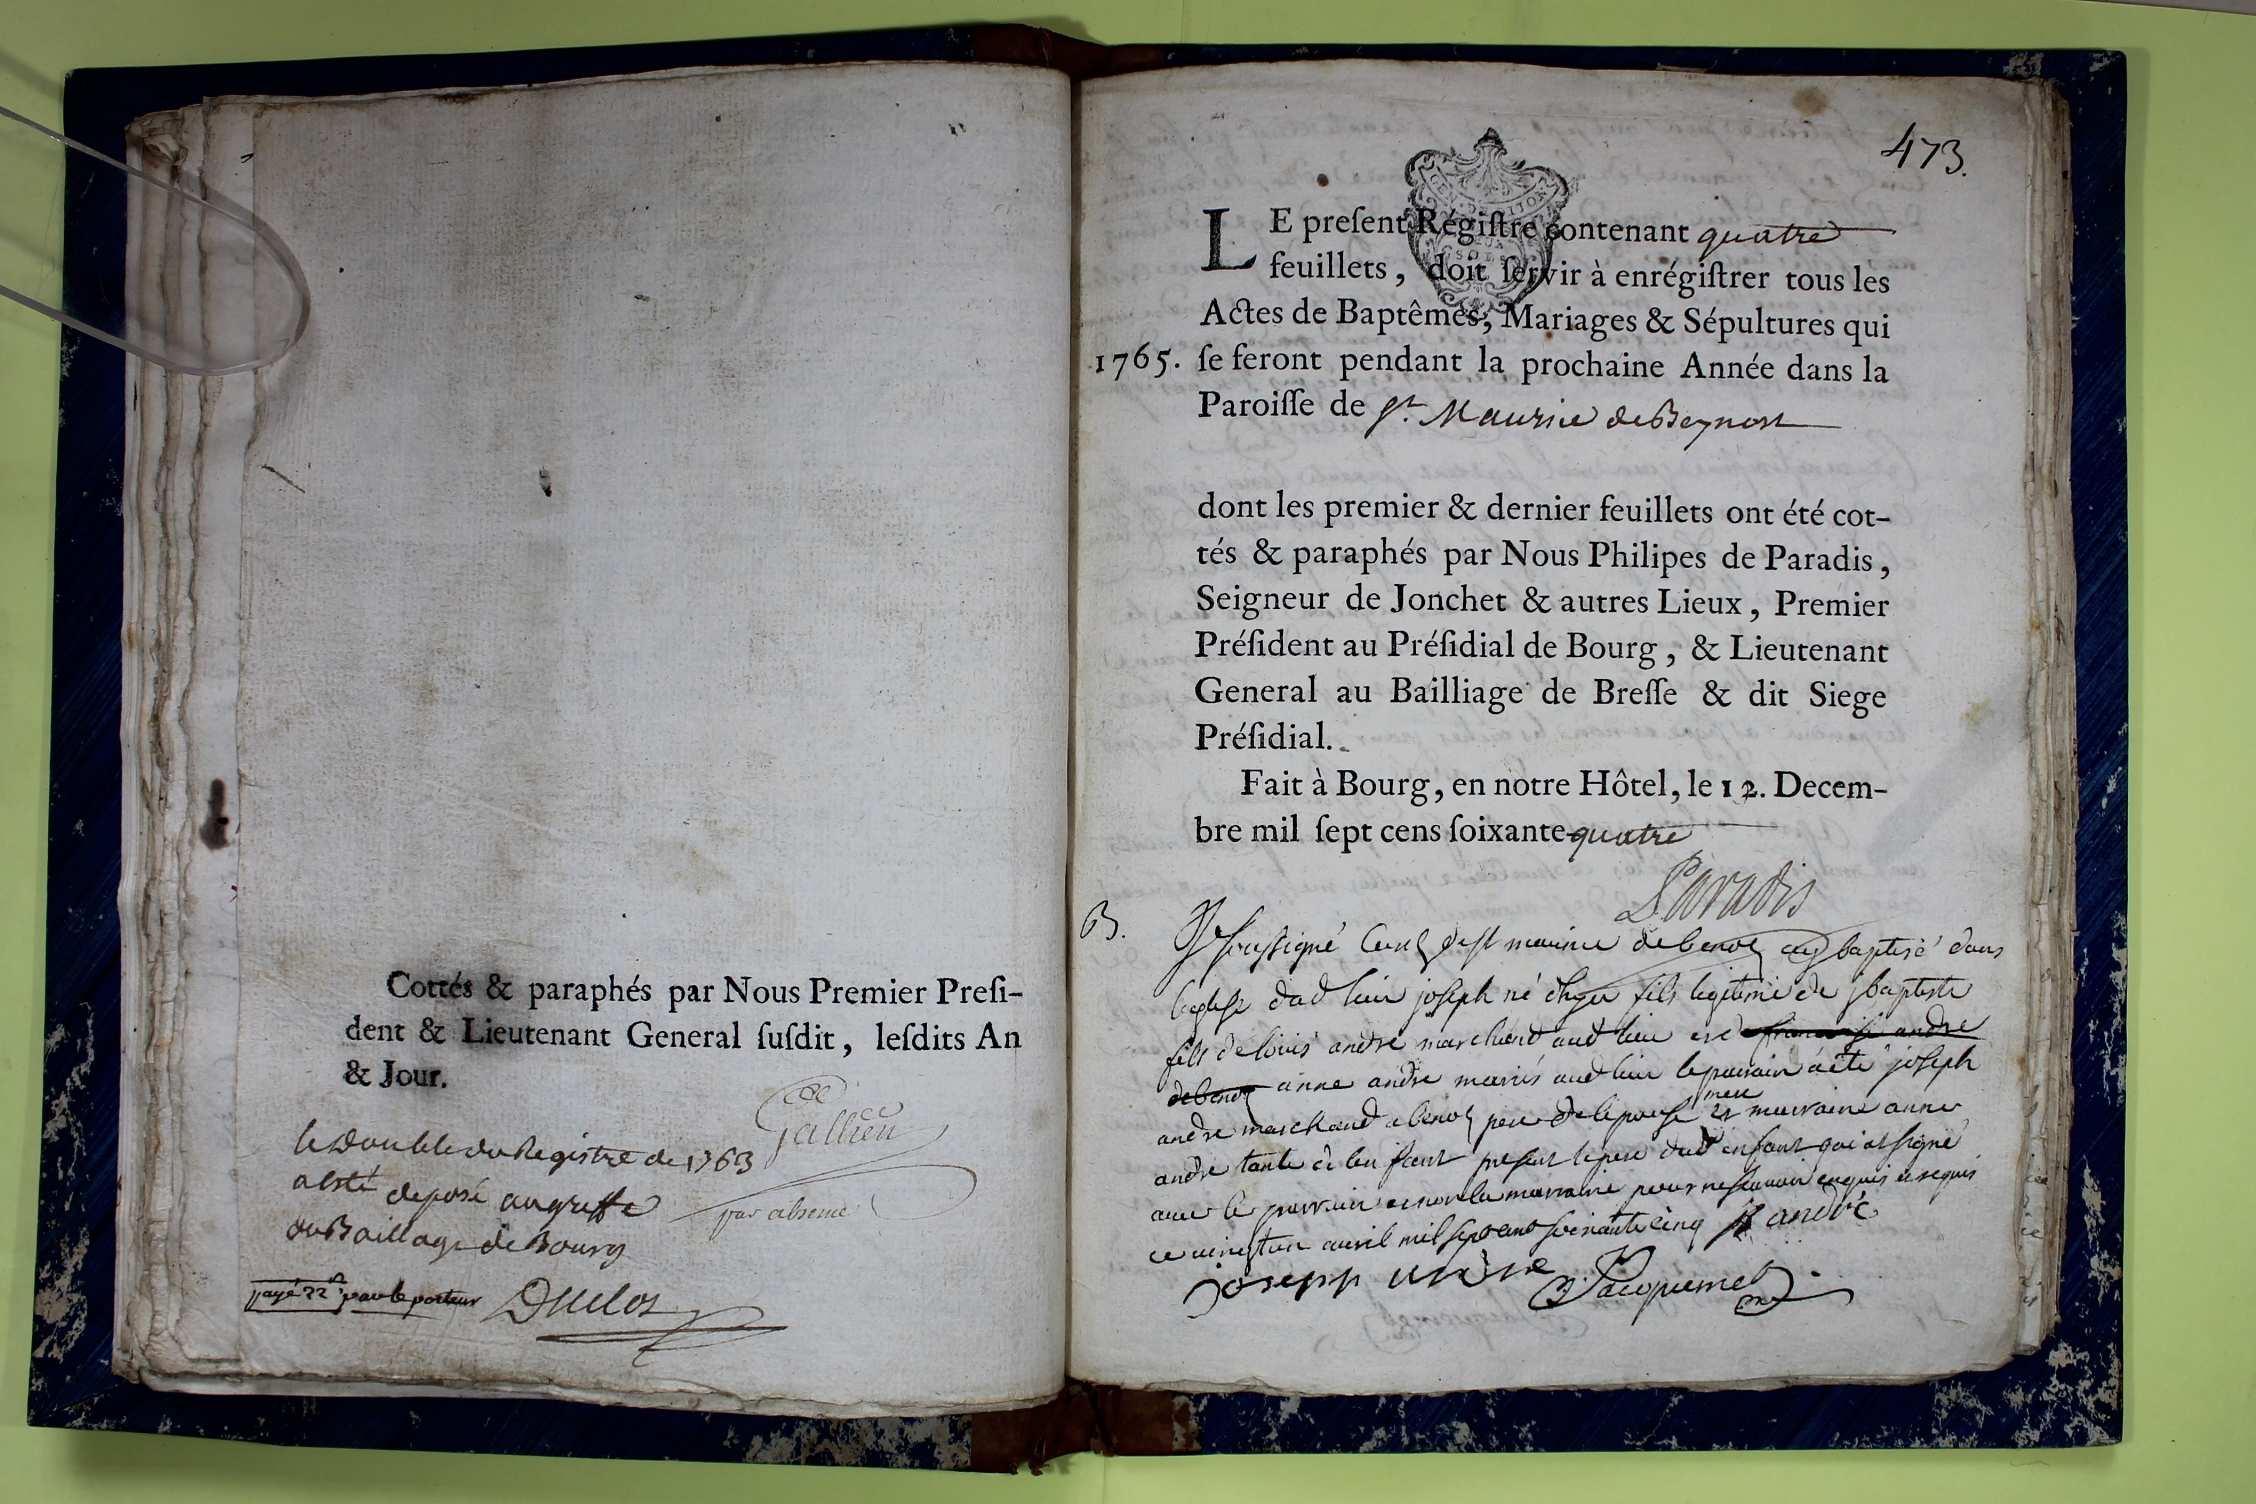 Cottés & paraphés par Nous Premier Presi-
dent & Lieutenant General susdit, lesdits An
& Jour.
Gallien
par absence
le Double du Registre de 1763
a esté deposé au greffe
du Baillage de Bourg
payé 22 s par le porteur Duclos
473.
LE present Régistre contenant quatre
feuillets, doit servir à enrégistrer tous les
Actes de Baptêmes, Mariages & Sépultures qui
1765. se feront pendant la prochaine Année dans la
Paroisse de St. Maurice de Beynost
dont les premier & dernier feuillets ont été cot-
tés & paraphés par Nous Philipes de Paradis,
Seigneur de Jonchet & autres Lieux, Premier
Président au Présidial de Bourg, & Lieutenant
General au Bailliage de Bresse & dit Siege
Présidial.
Fait à Bourg, en notre Hôtel, le 12. Decem-
bre mil sept cens soixante quatre
Paradis
B. Je soussigné Curé de st maurice de benot ay baptisé dans
leglise dud lieu joseph né fils legitime de jbaptiste
fils de louis andre marchand aud lieu et de francoise andre
de benot anne andre mariés aud lieu le parrain a eté joseph
andre marchand a benot pere de lepouse et marraine anne
andre tante de lenfant present le pere dud enfant qui at signé
avec le parrain et non la marraine pour ne scavoir enquis et requis
ce vingt un avril mil sept cent soixante cinq andré
joseph andre Jacquemet